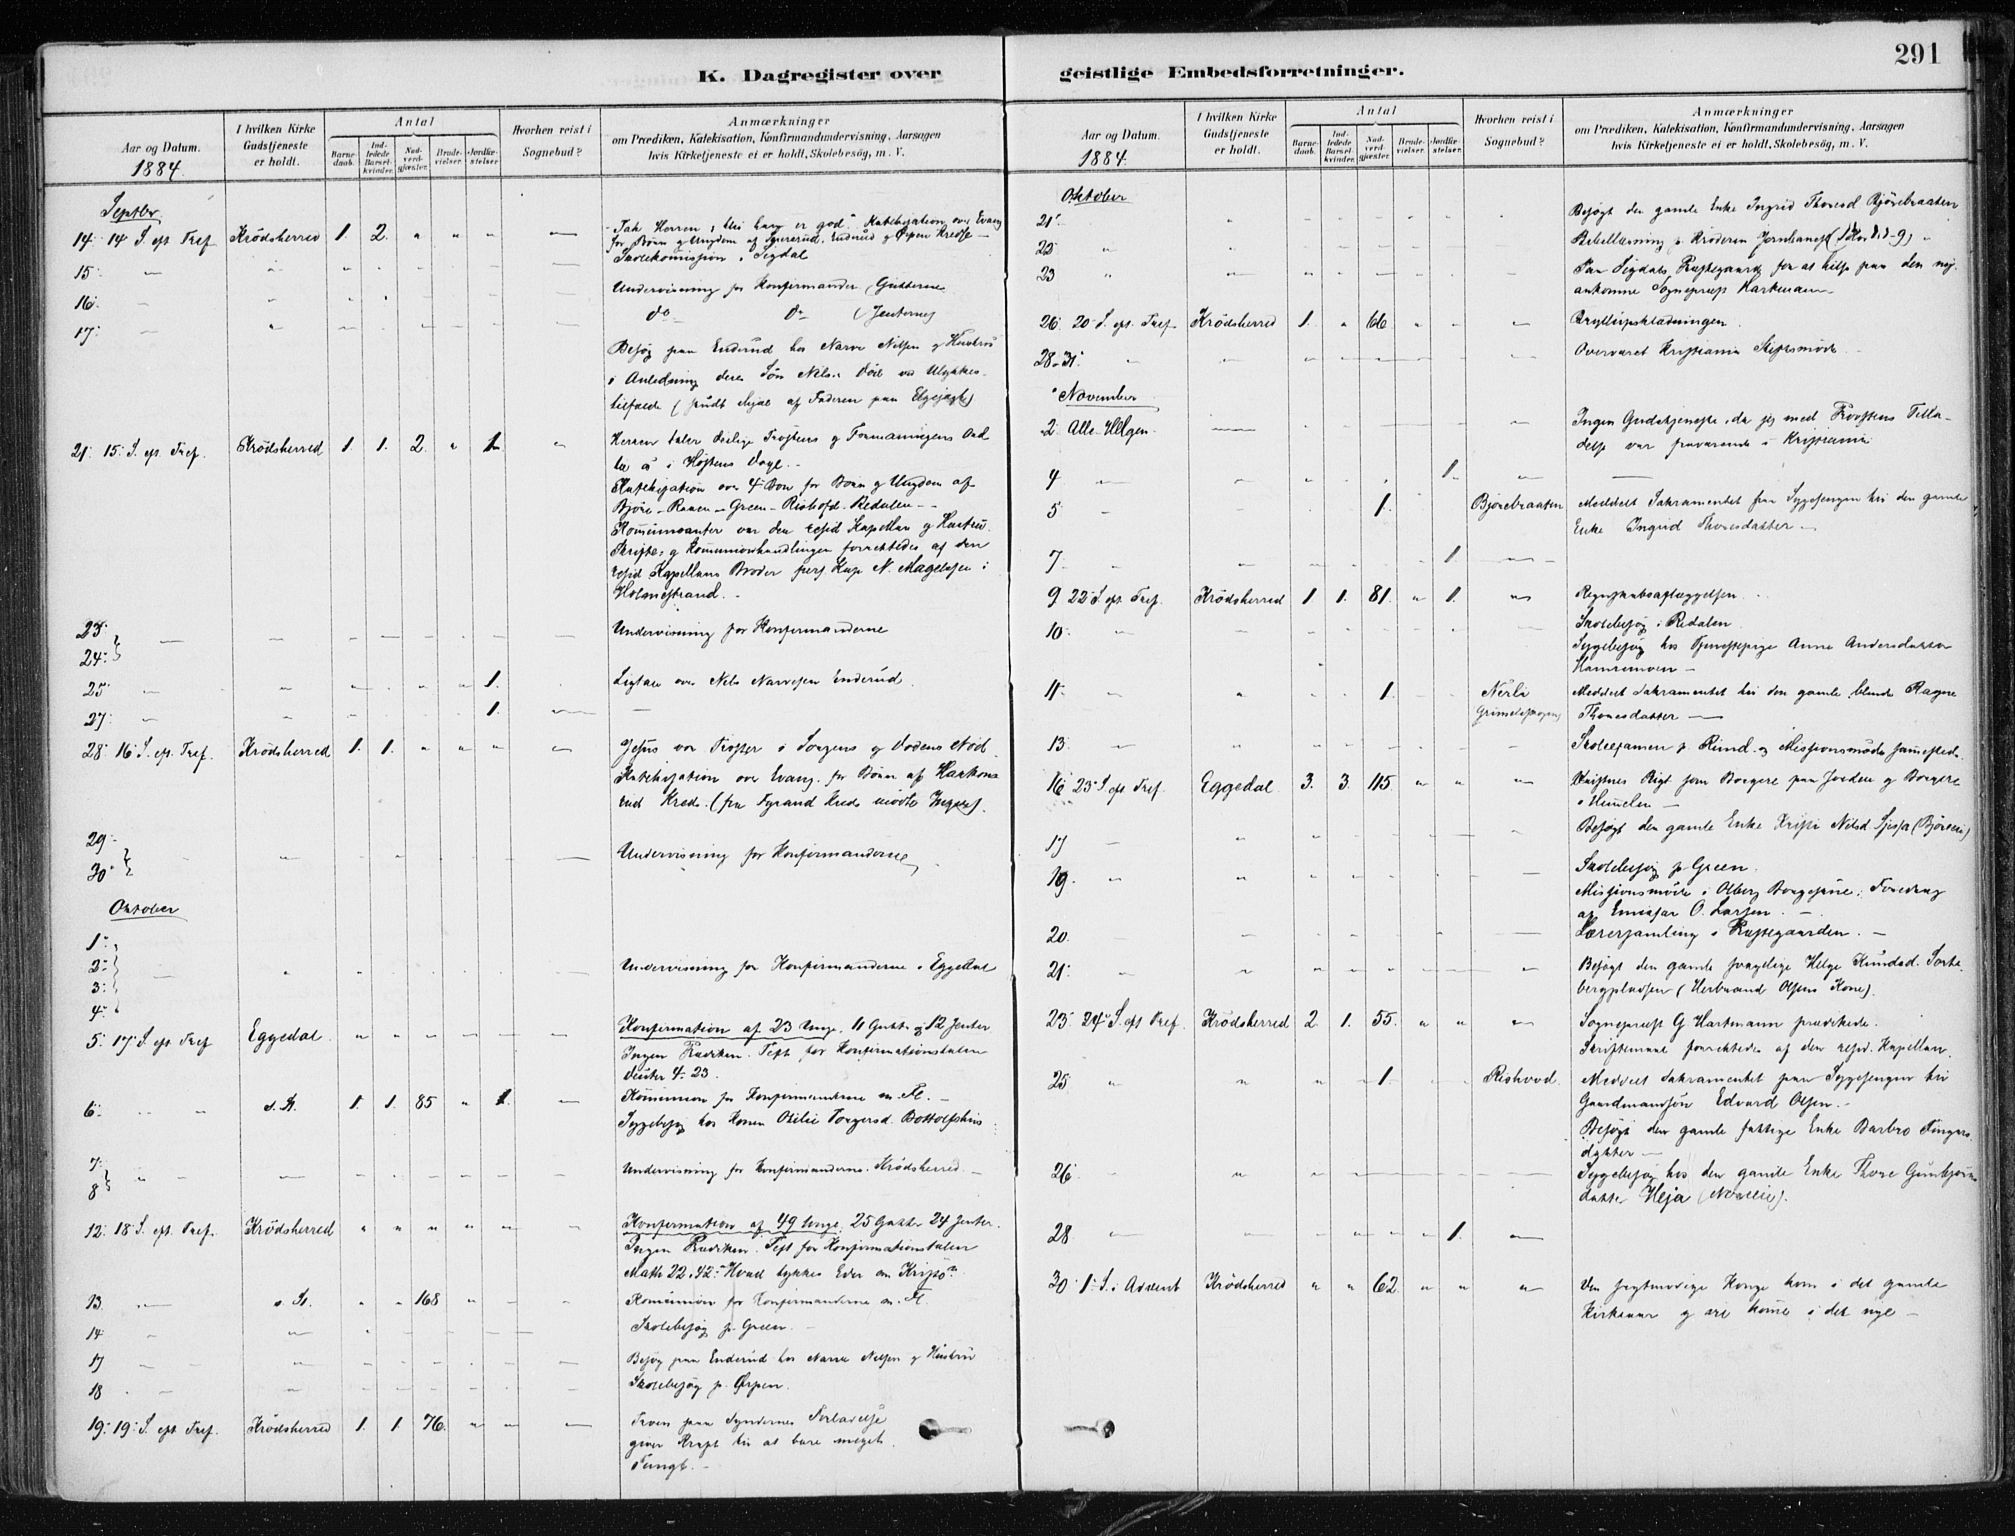 291
K. Dagregister over geistlige Embedsforretninger.
Aar og Datum.
1884.
I hvilken Kirke Gudstjeneste er holdt.
Antal
Barnedaab.
Indledede Barselkvinder.
Nadverdgjæster.
Brudevielser.
Jordfæstelser.
Hvorhen reist i Sognebud?
Anmærkninger
om Prædiken, Katekisation, Konfirmandundervisning, Aarsagen
hvis Kirketjeneste ei er holdt, Skolebesög, m. V.
Septbr
14: 14 S. eft Tref. Krödsherred 1. 2. " " " — Tak Herren; thi han er god. Katekisation over Evang
for Börn og Ungdom af
Skolekommission i Sigdal
15: —
16: — Undervisning for Konfirmander (Gutterne
17: — do do (Jenterne)
Besög paa Enderud hos Narve Nilsen og Hustru
i Anledning deres Sön Nils's Död ved Ulykkes-
tilfælde (skudt ihjel af Faderen paa Elgejagt)
21: 15: S. eft. Tref. Krödsherred 1. 1. 2. " 1. " Herren taler deilige Tröstens og Formaningens Ord
til os i Höstens Dage.
Katekisation over 4 Bön for Börn og Ungdom af
Björe - Ramen - Green - Redalen
Kommunicanter var den resid Kapellan og Hustru.
Skrifte- og Kommunionhandlingen forrettedes af den
resid Kapellans Broder pers Kap N. Magelsen i
Holmestrand.
23:
24: — Undervisning for Konfirmanderne
25: — 1. Ligtale over Nils Narvesen Enderud.
27: — 1. —
28: 16 S. eft. Tref. Krödsherred 1. 1. " " " — Jesus vor Tröster i Sorgens og Dödens Nöd
Katekisation over Evang. for Börn af Haakons
rud Kreds. (fra Fyrand Kreds mödte Ingen).
29:
30: — Undervisning for Konfirmanderne
Oktober
1:
2:
3:
4: — Undervisning for Konfirmanderne i Eggedal
5: 17: S. eft Tref Eggedal " " " " " — Konfirmation af 23 Unge, 11 Gutter og 12 Jenter
Ingen Prædiken. Text for Konfirmationstalen
Deuter 4. 23.
6: " " s. St. 1. 1. 85 " 1. — Kommunion for Konfirmanderne m. Fl. —
Sygebesög hos Konen Otilie Torgersd. Bottolfshus
7:
8: — Undervisning for Konfirmanderne. Krödsherred. —
12: 18 S. eft. Tref. Krödsherred " " " " " — Konfirmation af 49 Unge, 25 Gutter 24 Jenter.
Ingen Prædiken. Text for Konfirmationstalen
Math 22, 42: Hvad tykkes Eder om Kristo?
13. — s. St. " " 168 " " — Kommunion for Konfirmanderne m. Fl
14 — Skolebesög p. Green.
17 — Besög paa Enderud hos Narve Nilsen og Hustru
18 — Skolebesög p. Örpen.
19: 19: S. eft Tref. Krödsherred 1. 1. 76. " " — Troen paa Syndernes Forladelse
giver Kraft til at bære meget
Tungt. —
Aar og Datum.
1884.
I hvilken Kirke Gudstjeneste er holdt.
Antal
Barnedaab.
Indledede Barselkvinder.
Nadverdgjæster.
Brudevielser.
Jordfæstelser.
Hvorhen reist i Sognebud?
Anmærkninger
om Prædiken, Katekisation, Konfirmandundervisning, Aarsagen
hvis Kirketjeneste ei er holdt, Skolebesög, m. V.
Oktober
21: Besögt den gamle Enke Ingrid Thoresd Björebraaten
22 " Bibellæsning p. Kröderen Jernbanest
23 " Paa Sigdals Præstegaard for at hilse paa den ny-
ankomne Sognepræst Hartmann —
26: 20 S. eft. Tref. Krödsherred 1. " 66 " " — Bryllupsklædningen.
28-31: — Overværet Kristiania Stiftsmöde
November
2: Alle Helgen. — Ingen Gudstjeneste, da jeg med Provstens Tilla-
delse var fraværende i Kristiania
4 — 1. —
5 — 1. Björebraaten Meddelt Sakramentet paa Sygesengen til den gamle
Enke Ingrid Thoresdatter —
7 — 1. —
9 22 S. eft Tref. Krödsherred 1. 1. 81. " 1. " Regnskabsaflæggelsen.
10: — Skolebesög i Redalen
Sygebesög hos Tjenestepige Anne Andersdatter
Hamremoen —
11: — 1. Nerli Grimeliskogen Meddelt Sakramentet til den gamle, blinde Ragne
Thoresdatter —
13: — Skoleexamen p. Rund. og Missionsmöde samesteds.
16 23 S eft Tref. Eggedal 3. 3. 115. " " " Kristnes Rigt som Borgere paa Jorden og Borgere
i Himmelen —
17 — Besögt den gamle Enke Kristi Nilsd.
19. — Skolebesög p. Green.
Missionsmöde i Olberg Borgestue; Foredrag
af Emissær O. Larsen. —
20. Lærersamling i Præstegaarden. —
21: — Besögt den gamle svagelige Helge Knudsd. Sorte-
bergpladsen (Herbrand Olsens Kone).
23: 24: S. eft Tref. Krödsherred 2. 1. 55. " " " Sognepræst G Hartmann prædikede.
Skriftemaal forrettedes af den resid. Kapellan.
25 " 1. Rishovd. Meddelt Sakramentet paa Sygesengen til
Gaardmandsön Edvard Olsen. —
Besögt den gamle fattige Enke Barbro Fingers
datter —
26: — Sygebesög hos den gamle Enke Thore Gunbjörns
datter Heja
28 — 1. —
30: 1: S. i Advent Krödsherred " " 62. " " " Den sagtmodige Konge kom i det gamle
Kirkeaar og vil komme i det nye —